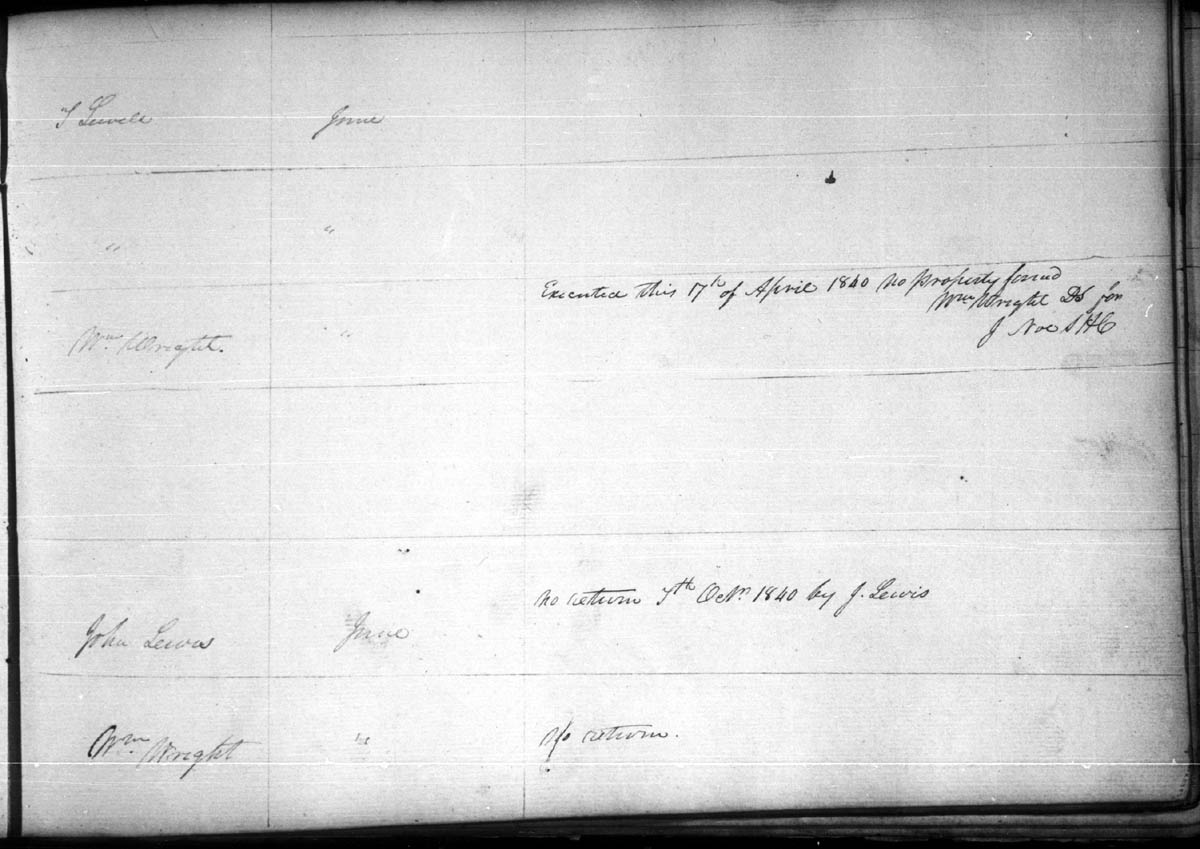 J Lewis June
" "
Executed this 17th of April 1840 No Property found
Wm Wright DS for
J Noe SHC
Wm Wright. "
no return 5th Octr 1840 by J. Lewis
John Lewis June
Wm Wright " No return.